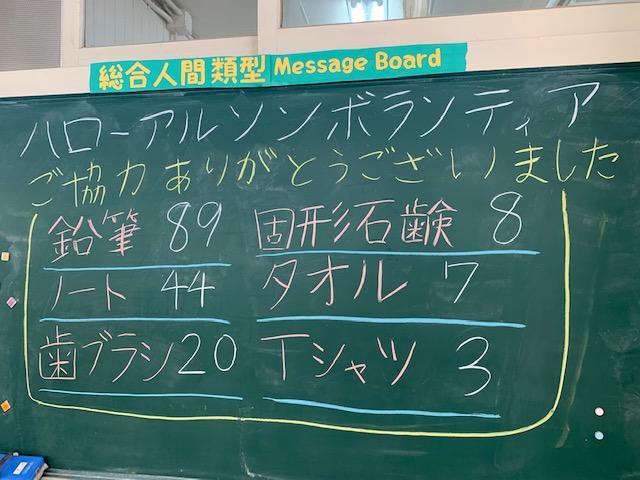 総合人間類型 Message Board
ハローアルソンボランティア
ご協力ありがとうございました
鉛筆 89 固形石鹸 8
ノート 44 タオル 7
歯ブラシ 20 Tシャツ 3